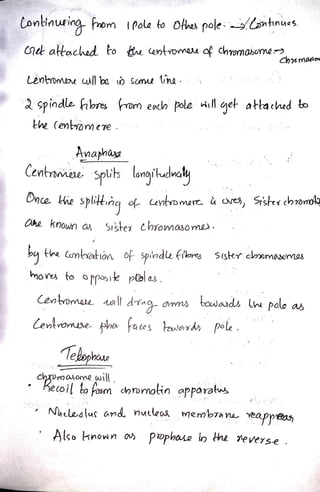 Continueing from 1 Pole to Other pole. → Continues
Get attached to the centromere of chromosome →
Centromere will be in same line.
2 spindle fibres from each pole will get attached to
the Centromere.
Anaphase
Centromere splits longitudnaly
Once the splitting of centromere is over, Sister
are known as Sister chromosomes.
by the Contration of spindle fibres sister chromosomes
moves to opposite poles.
Centromere will drag arms towards the pole as
Centromere faces towards pole.
Telophase
chromosome will
• Recoil to form chromatin apparatus
• Nucleolus and nuclear membrane reappears
• Also known as prophase in the reverse.